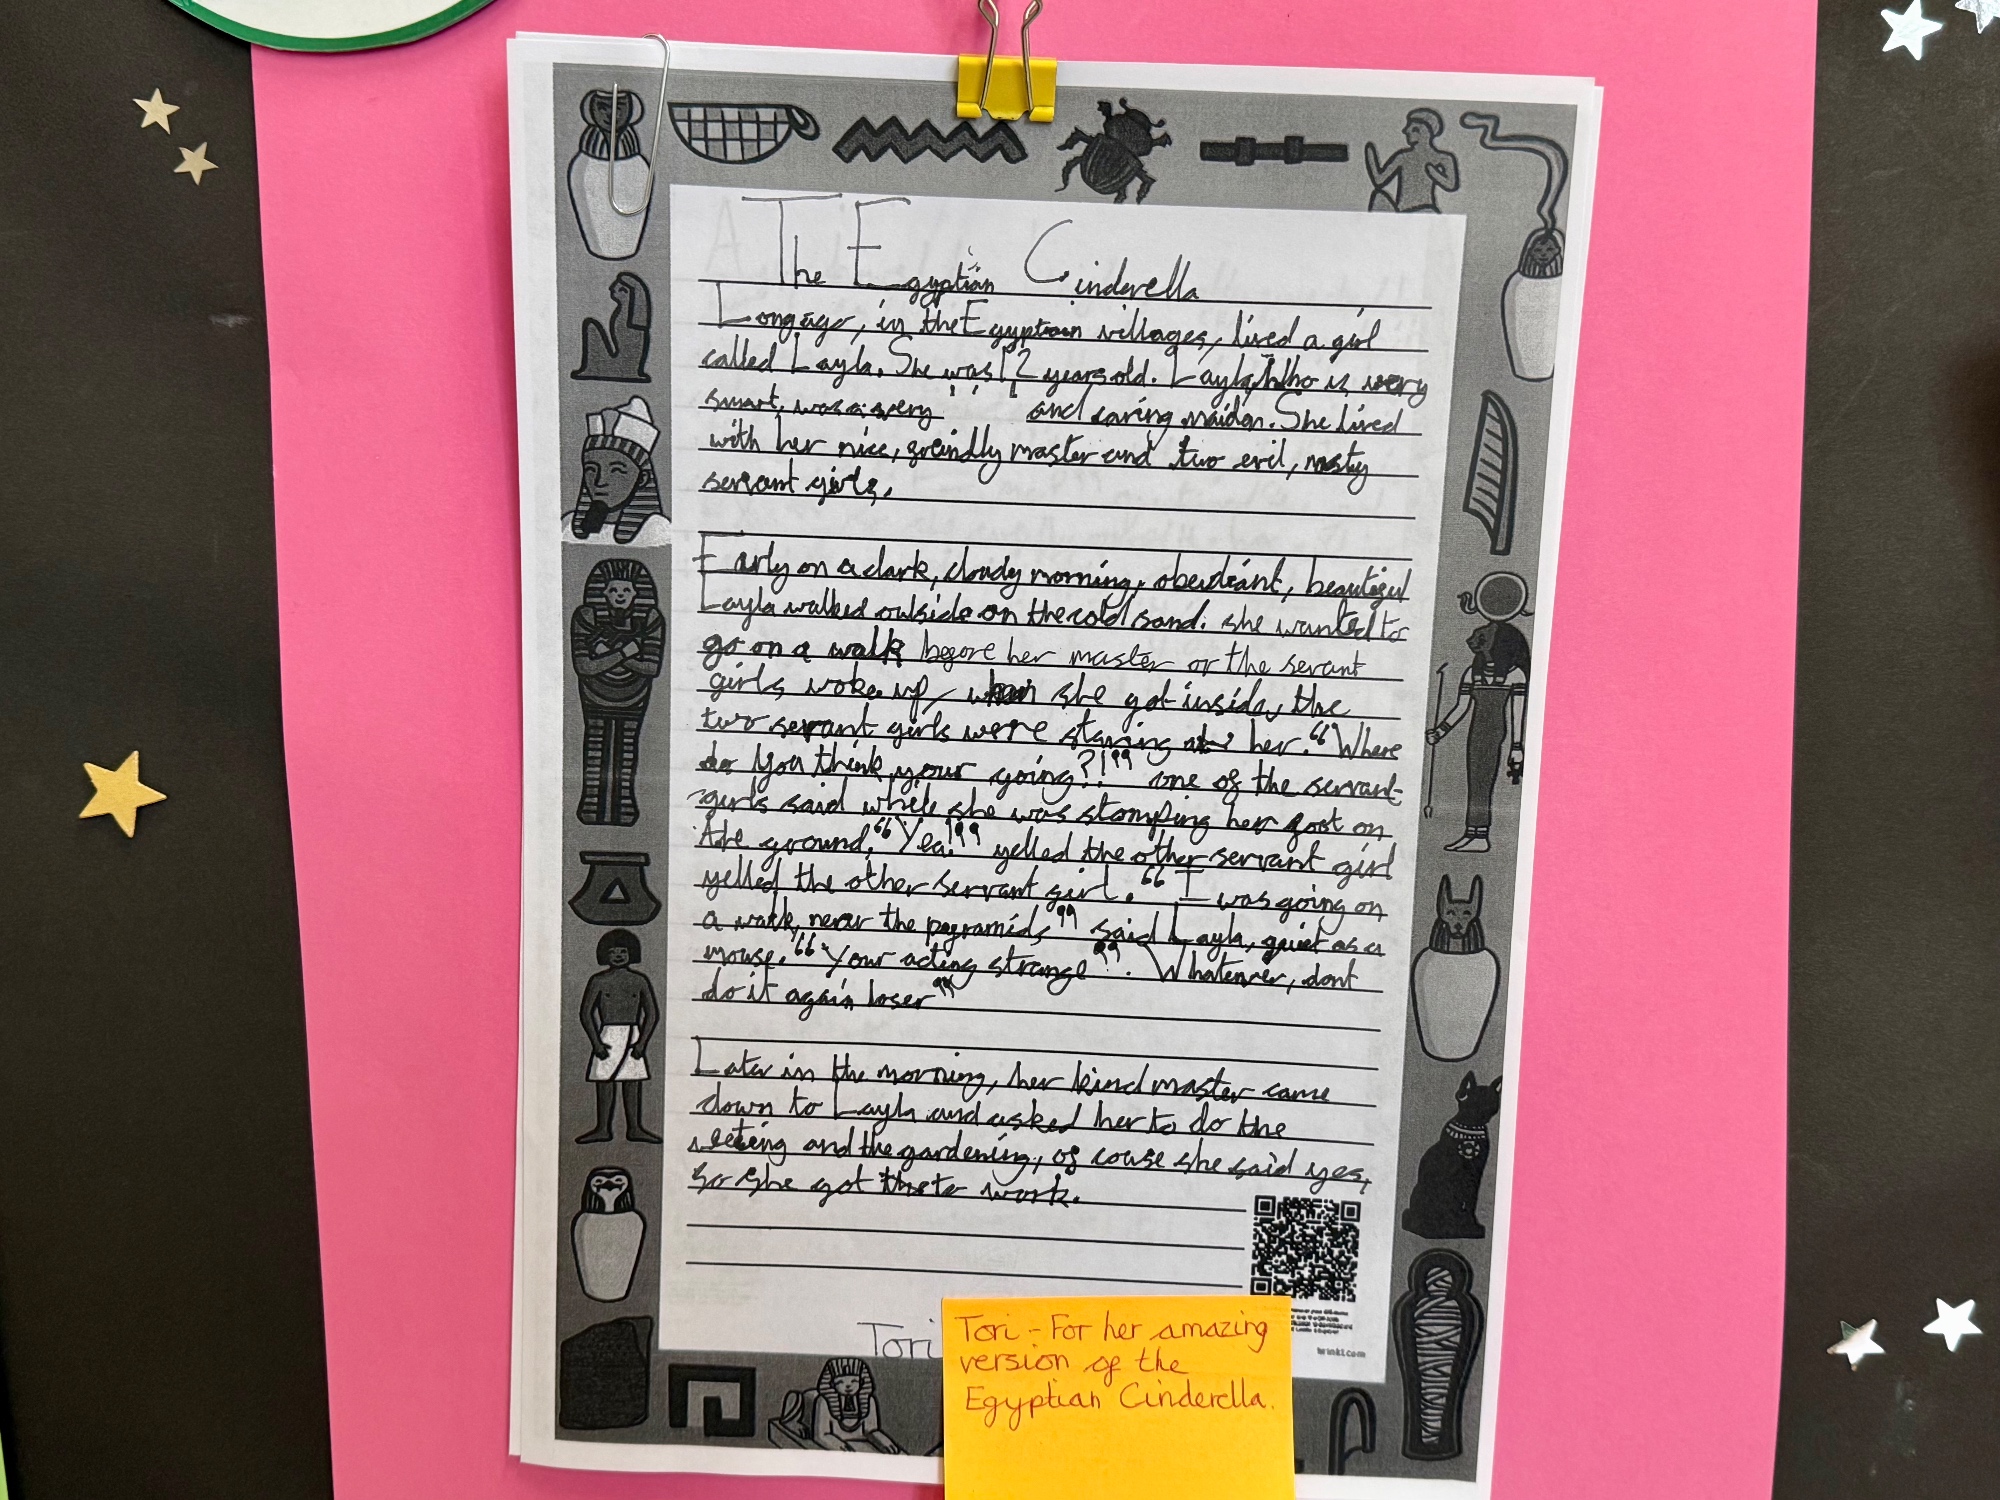 The Egyptian Cinderella
Long ago, in the Egyptian villages, lived a girl
called Layla. She was 12 years old. Layla, Who is very
smart, was a very and caring maiden. She lived
with her nice, freindly master and two evil, nasty
servant girls.
Early on a dark, cloudy morning, obeidiant, beautiful
Layla walked outside on the cold sand. she wanted to
go on a walk before her master or the servant
girls woke up, when she got inside, the
two servant girls were staring at her. “Where
do you think your going?!” one of the servant
girls said while she was stomping her foot on
the ground. “Yea!” yelled the other servant girl
yelled the other servant girl. “I was going on
a walk, near the pyramids” said Layla, quiet as a
mouse. “Your acting strange”. Whatever, dont
do it again loser”
Later in the morning, her kind master came
down to Layla and asked her to do the
and the gardening, of couse she said yes,
so she got to work.
Tori
Tori - For her amazing
version of the
Egyptian Cinderella.
twinkl.com